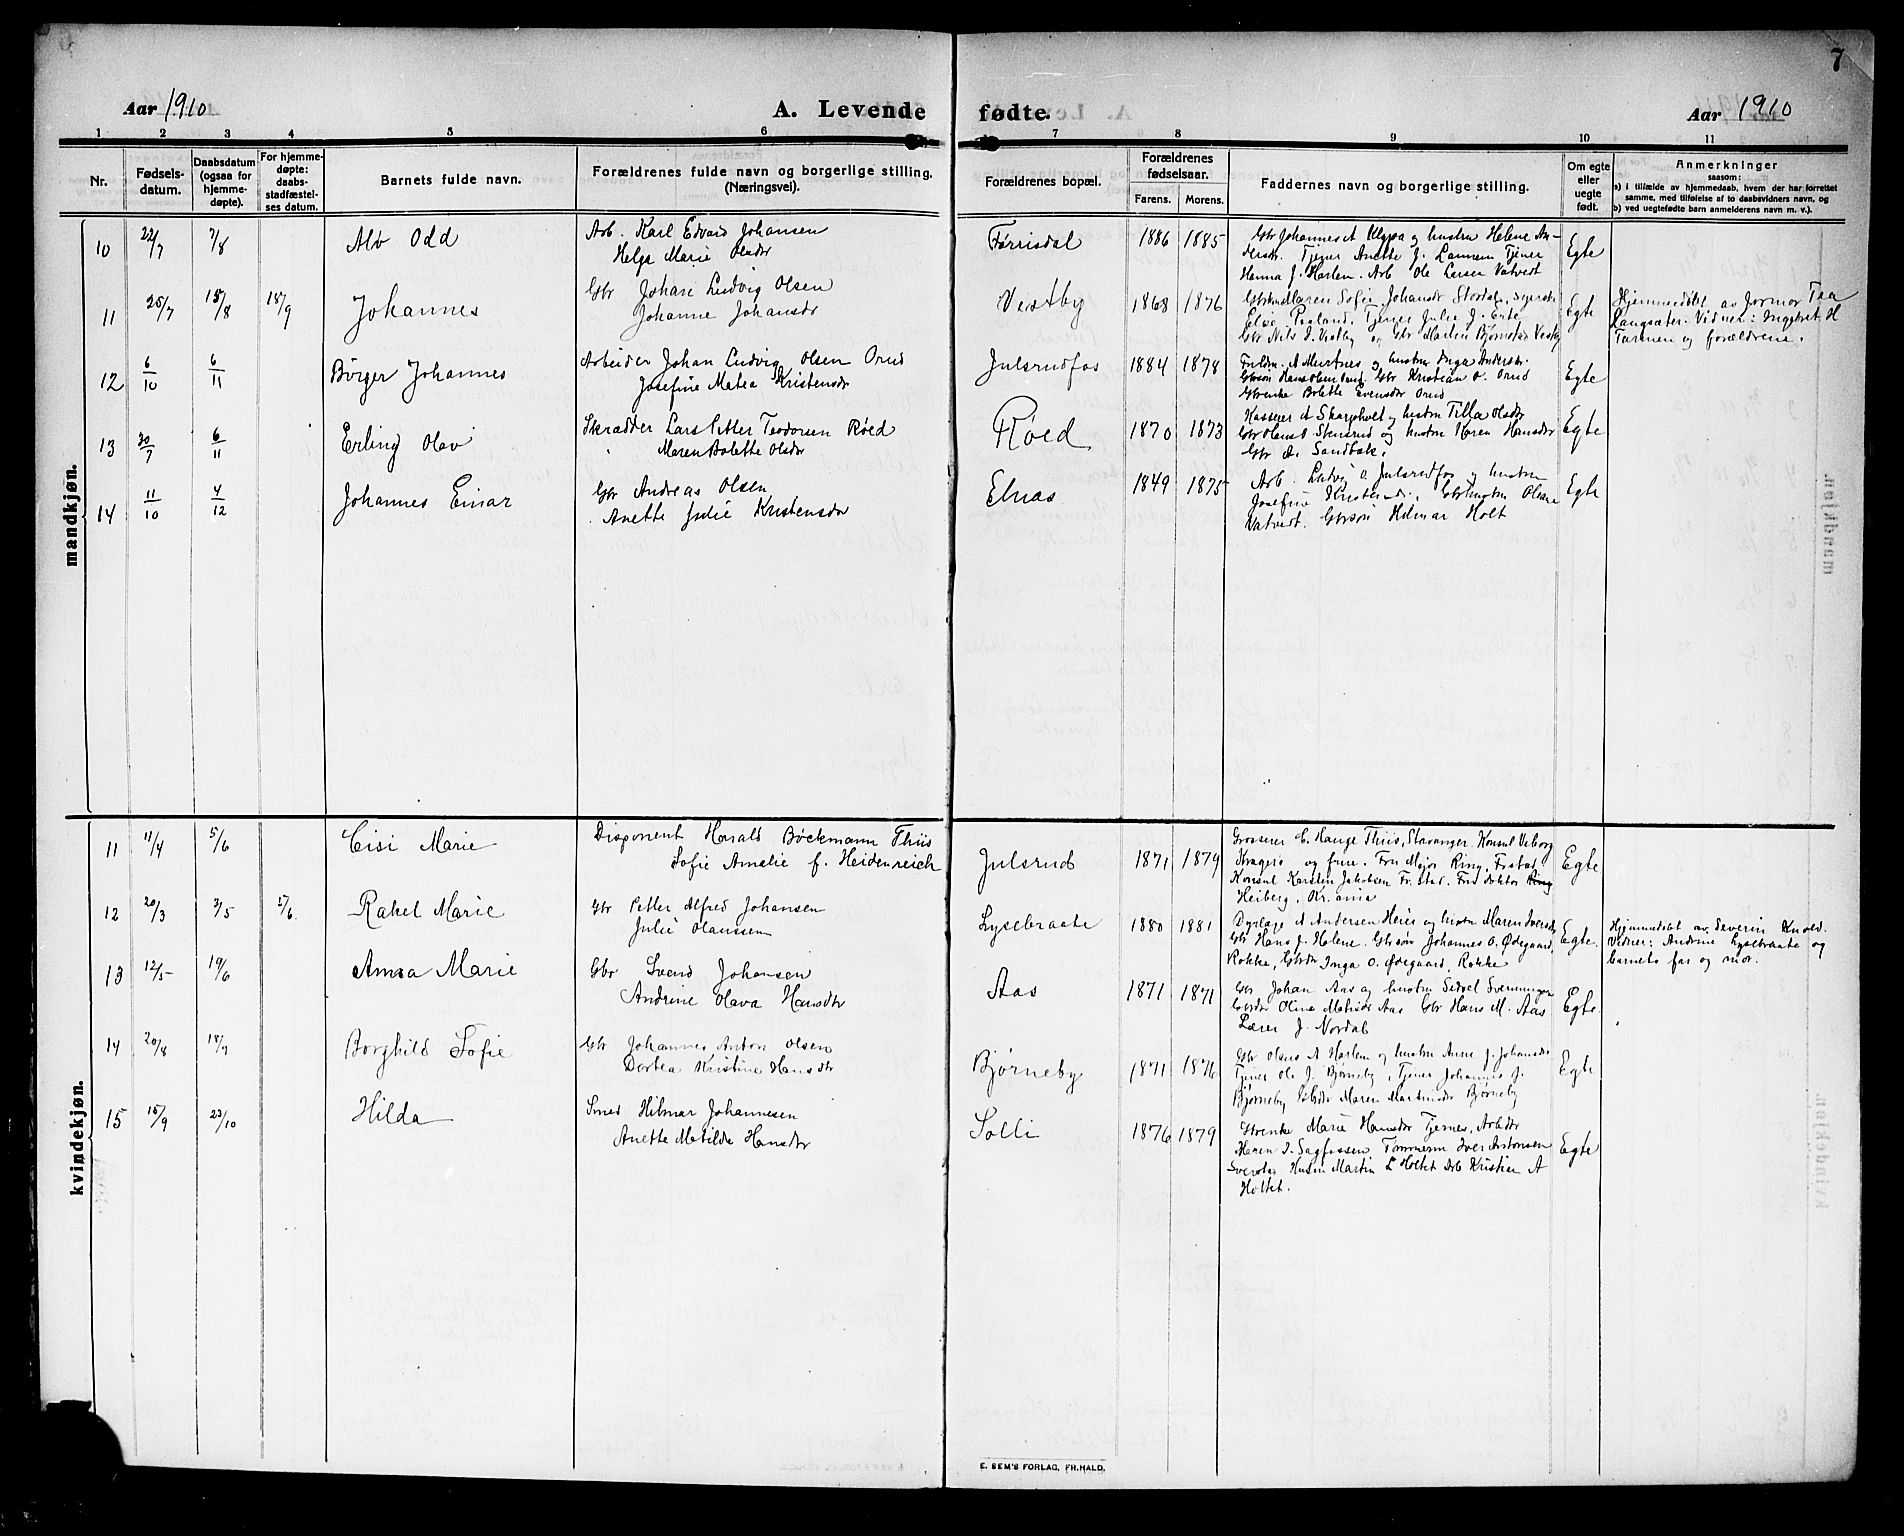 7
Aar 1910
A. Levende
fødte.
Aar 1910
1 2 3 4 5 6 7 8 9 10 11
Nr.
Fødsels-
datum.
Daabsdatum
(ogsaa for
hjemme-
døpte).
For hjemme-
døpte:
daabs-
stadfæstel-
ses datum.
Barnets fulde navn.
Forældrenes fulde navn og borgerlige stilling.
(Næringsvei).
Forældrenes bopæl.
Forældrenes
fødselsaar.
Farens. Morens.
Faddernes navn og borgerlige stilling.
Om egte
eller
uegte
født.
Anmerkninger
saasom:
a) i tilfælde av hjemmedaab, hvem der har forrettet
samme, med tilføielse af to daabsvidners navn, og
b) ved uegtefødte barn anmelderens navn m. v.).
mandkjøn.
10 22/7 7/8 Alv Odd
Arb. Karl Edvard Johansen
Helga Marie Olsdtr
Førrisdal 1886 1885
Gbr Johannes Klypa og hustru Helene An-
dersdtr. Tjener Anette J. Lannem Tjener
Hanna J. Harlem. Arb Ole Larsen Vatvedt
Egte
11 25/7 15/8 18/9 Johannes
Gbr Johan Ludvig Olsen
Johanne Johansdr
Vestby 1868 1876
Maren Sofie Johansdr Stordal, syerske
Elise Tjener Julie J. Erte
Gbr Nils J. Vestby og Gbr Martin Bjørnstad Vestby
Egte
Hjemmedøbt av Jormor Tea
Langsæter. Vidner: H
og forældrene.
12 6/10 6/11 Børger Johannes
Arbeider Johan Ludvig Olsen Orud
Josefine Matea Kristensdr
Julsrudfos 1884 1878
A Mertnes og hustru Inga Andersdr.
Gbrsøn Hans Olsen Orud Gbr Kristian O. Orud
Gbrenke Bolette Evensdr Orud
Egte
13 30/7 6/11 Erling Olav
Skrædder Lars Petter Teodorsen Røed
Maren Bolette Olsdtr
Røed 1870 1873
Kasserer A Skarpholt og hustru Tilla Olsdtr
Gbr Stensrud og hustru Karen Hansdtr
Gbr A. Sandbæk.
Egte
14 11/10 4/12 Johannes Einar
Gbr Andreas Olsen
Anette Julie Kristensdr
Elnæs 1849 1875
Arb. Ludvig O Julsrudfos og hustru
Josefine Kristensd. Gbrhustru Olava
Vatvedt. Gbrsøn Hilmar Holt
Egte
kvindekjøn.
11 11/4 5/6 Cisi Marie
Disponent Harald Bøckmann Thiis
Sofie Amelie f. Heidenreich
Julsrud 1871 1879
Grosserer C. Hauge Thiis, Stavanger, Konsul Viborg
Kragerø og frue. Fru Major Ring, Fr.stad
Konsul Karsten Jakobsen Fr.stad. Fru doktor Ring
Heiberg, Kr.ania
Egte
12 20/3 3/5 5/6 Rakel Marie
Gbr Petter Alfred Johansen
Julie Olaussen
Lysebraate 1880 1881
Dyrlæge A Andersen Heier og hustru Maren Iversdtr
Gbr Hans J. Holene. Gbrsøn Johannes O. Ødegaard,
Rokke, Gbrdtr Inga O. Ødegaard, Rokke
Egte
Hjemmedøbt av Severin Knold.
Vidner: Andrine Lysebraate og
barnets far og mor.
13 12/5 19/6 Anna Marie
Gbr Svend Johansen
Andrine Olava Hansdtr
Aas 1871 1871
Gbr Johan Aas og hustru Sidsel Svenningsen
Gbrdtr Olina Aas Gbr Hans M. Aas
Lærer J. Nordal
Egte.
14 20/8 18/9 Borghild Sofie
Gbr Johannes Anton Olsen
Dortea Kristine Hansdtr
Bjørneby 1871 1876
Gbr Olaus A Harlem og hustru Anne J. Johansdtr
Tjener Ole J. Bjørneby, Tjener Johannes J.
Bjørneby Gbrdtr Maren Martinsdtr Bjørneby
Egte
15 15/9 23/10 Hilda
Smed Hilmar Johannesen
Anette Matilde Hansdtr
Solli 1876 1879
Gbrenke Marie Hansdtr Tjernes, Arbdtr
Maren I. Sagfossen Tømmerm Iver Antonsen
Husm Martin L Holtet Arb Kristian A
Holtet.
Egte
E. SEM'S FORLAG, FR.HALD.